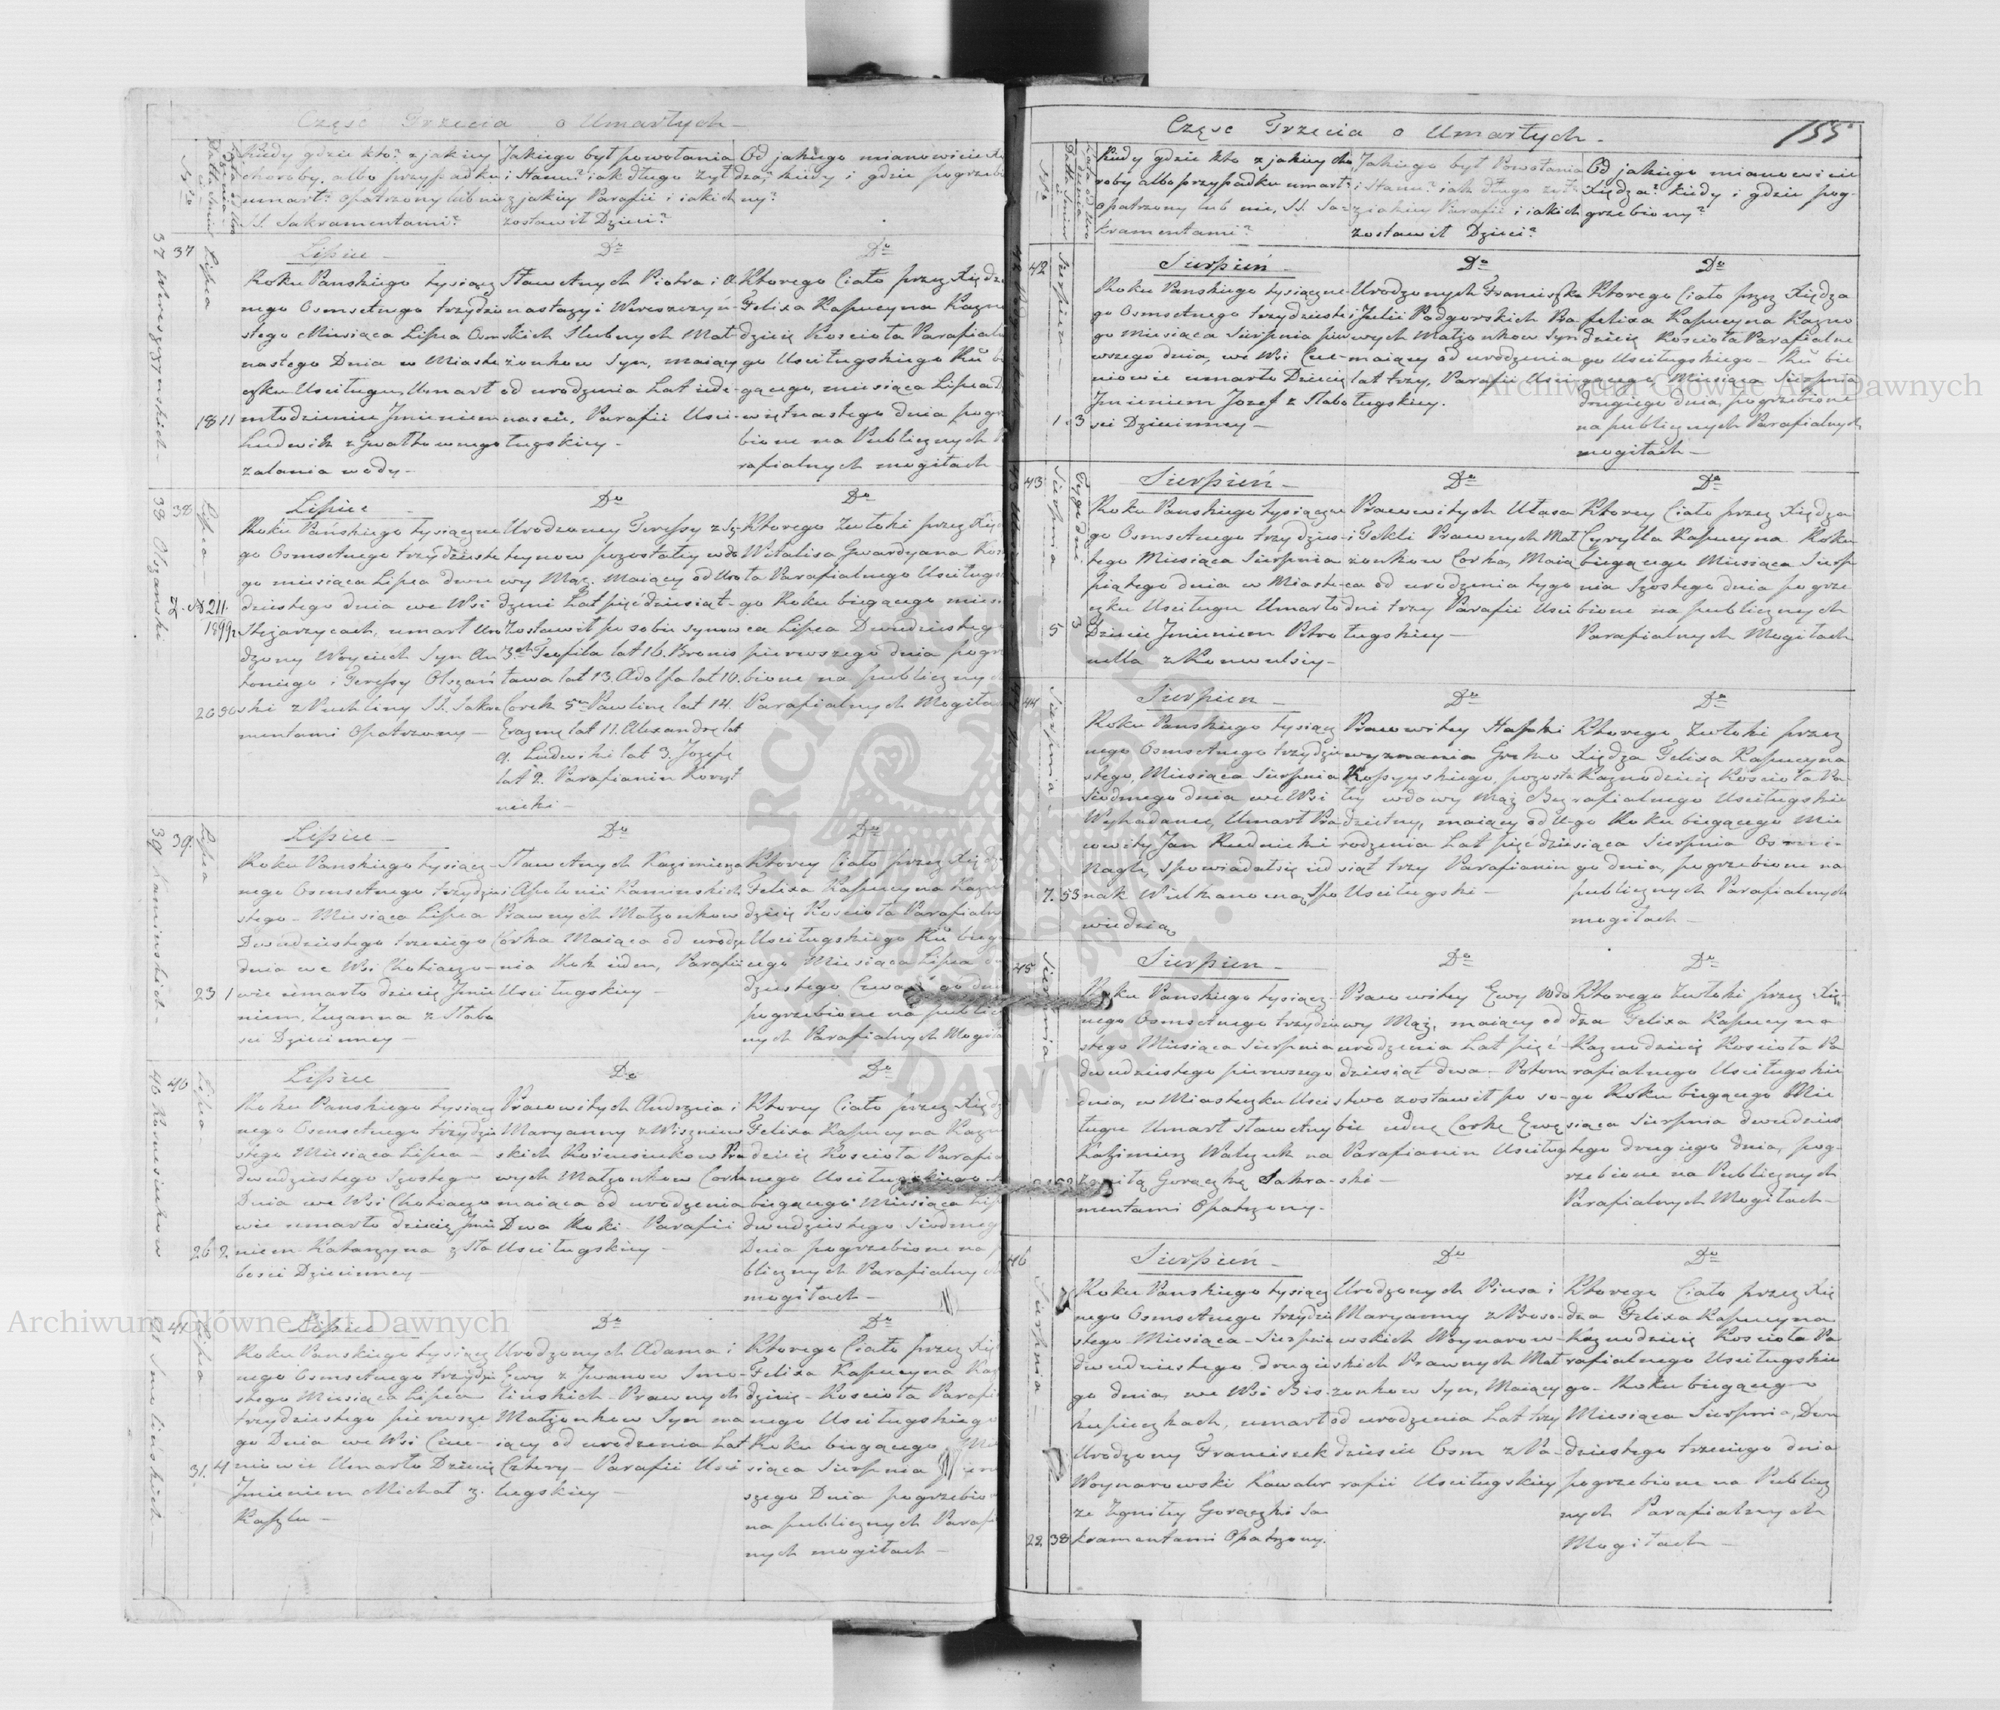 Część Trzecia o Umarłych
Kiedy gdzie kto? z jakiey
choroby, albo przypadku
umarł? opatrzony lub nie
SS. Sakramentami?
Jakiego był powołania
i Stanu? iak długo żył
z jakiey Parafii i iakich
zostawił Dzieci?
Od jakiego mianowicie
kiedy i gdzie
37
Lipca
18 11
Lipiec
Roku Pańskiego tysiącz
nego Osmsetnego trzydzie
stego Miesiąca Lipca Osm
nastego Dnia w Miaste
czku Uściługu, Umarł
młodzieniec Jmieniem
Ludwik z Gwałtownego
zalania wody
Do
Sławetnych Piotra i A
nastazyi Wereszczyń-
skich Slubnych Mał-
żonków Syn, maiący
od urodzenia Lat iede-
naście, Parafii Uści-
ługskiey
Do
Którego Ciało przez Xiędza
Felixa Kapucyna Kazno
dzieię Kościoła Parafialne
go Uściługskiego Ru bie
gącego, miesiąca Lipca d
więtnastego dnia pogrze
bione na Publicznych
rafialnych mogiłach
38
Lipca
20 50
Lipiec
Roku Pańskiego tysiączne
go Osmsetnego trzydzieste
go miesiąca Lipca dwu
dziestego dnia we Wsi
Stężarzycach, umarł Uro
dzony Woyciech Syn An
toniego i Teressy Olszań
ski z Puchliny SS. Sakra
mentami Opatrzony
Do
Urodzoney Teressy z
pozostałey wdo
wy Mąż. maiący od Uro
dzeni Lat pięćdziesiąt
Zostawił po sobie synow
3ch Teofila lat 16. Bronis
ława lat 13. Adolfa lat 10.
Corek 5 Paulinę lat 14.
Erazmę lat 11. Alexandrę lat
9. Ludwikę lat 3. Jozefę
lat 2. Parafianin Koryt
nicki
Do
Którego Zwłoki przez Xię
Witalisa Gwardyana Koś
ła Parafialnego Uściługs
go Roku biegącego mies
ca Lipca Dwudziestego
pierwszego dnia pogrze
bione na publiczny
Parafialnych Mogiłach
39
Lipca
23 1
Lipiec
Roku Pańskiego tysiącz
nego Osmsetnego trzydzie
stego Miesiąca Lipca
Dwudziestego trzeciego
dnia we Wsi Chotiaczo-
wie umarło dziecię Jmie
niem, Zuzanna z Słabo
ści Dziecinney
Do
Sławetnych Kazimierza
i Apolonii Kaminskich
Prawnych Małżonkow
Córka Maiąca od urodze
nia Rok ieden, Parafii
Uściługskiey
Do
Którey Ciało przez Xięd
Felixa Kapucyna Kazno
dzieię Kościoła Parafialn
Uściługskiego Ru bieg
cego Miesiąca Lipca
dziestego Czwartego dnia
pogrzebione na public
nych Parafialnych Mogiła
40
Lipca
26 2
Lipiec
Roku Pańskiego tysiącz
nego Osmsetnego trzydzie
stego Miesiąca Lipca
dwudziestego Szóstego
Dnia we Wsi Chotiaczo
wie umarło dziecię Jmie
niem Katarzyna z Sła
bości Dziecinney
Do
Pracowitych Andrzeia i
Maryanny z Wiszniew
skich Kościuszkow Pra
wych Małżonkow Corka
maiąca od urodzenia
Dwa Roki Parafii
Uściługskiey
Do
Którey Ciało przez Xiędz
Felixa Kapucyna Kazno
dzieię Kościoła Parafia
nego Uściługskiego
biegącego Miesiąca Lip
dwudziestego Siódmego
Dnia pogrzebione na
blicznych Parafialnych
mogiłach
41
Lipca
31. 4
Lipiec
Roku Pańskiego tysiącz
nego Osmsetnego trzydzie
stego Miesiąca Lipca
trzydziestego pierwsze
go Dnia we Wsi Cuc-
niowie Umarło Dziecię
Jmieniem Michał z
Kaszlu
Do
Urodzonych Adama i
Ewy z Jwanow Smo-
lińskich Prawnych
Małżonkow Syn ma
iący od urodzenia Lat
Cztery Parafii Uści
ługskiey
Do
Którego Ciało przez Xię
Felixa Kapucyna Kaz
dzieię Kościoła Parafi
nego Uściługskiego
Roku biegącego Mie
siąca Sierpnia Pierw
szego Dnia pogrzebio
na publicznych Parafi
nych mogiłach
Część Trzecia o Umarłych
155
Kiedy gdzie kto z jakiey cho
roby albo przypadku umarł?
opatrzony lub nie, SS. Sa-
kramentami?
Jakiego był Powołania
i Stanu? iak długo żył?
z iakiey Parafii i iakich
zostawił Dzieci?
Od jakiego mianowicie
Xiędza? kiedy i gdzie pog-
grzebiony?
42
Sierpień
1. 3
Sierpień
Roku Pańskiego tysiączne
go Osmsetnego trzydzieste
go miesiąca Sierpnia pier
wszego dnia, we Wsi Cuc-
niowie umarło Dziecię
Jmieniem Jozef z Słabo
ści Dziecinney
Do
Urodzonych Franciszka
i Julii Podgorskich Pra
wych Małżonkow Syn
maiący od urodzenia
lat trzy, Parafii Uści
ługskiey.
Do
Którego Ciało przez Xiędza
Felixa Kapucyna Kazno
dzieię Kościoła Parafialne
go Uściługskiego Ru bie
gącego Miesiąca Sierpnia
drugiego dnia, pogrzebione
na publicznych Parafialnych
mogiłach
43
Sierpnia
Tygodni
5 3
Sierpień
Roku Pańskiego tysiączne
go Osmsetnego trzydzies-
tego Miesiąca Sierpnia
piątego dnia w Miaste
czku Uściługu Umarło
Dziecię Jmieniem Petro
nella z Konwulsiy
Do
Pracowitych Ułasa
i Tekli Prawnych Mał
żonkow Corka, Maią
ca od urodzenia tygo
dni trzy Parafii Uści
ługskiey
Do
Którey Ciało przez Xiędza
Cyrylla Kapucyna Roku
biegącego Miesiąca Sierp
nia Szóstego dnia pogrze
bione na publicznych
Parafialnych Mogiłach
44
Sierpnia
7. 53
Sierpien
Roku Pańskiego tysiącz
nego Osmsetnego trzydzie
stego, Miesiąca Sierpnia
Siodmego dnia we Wsi
Wyhadance, Umarł Pra
cowity Jan Rudnicki
Nagle, Spowiadał się ied
nak Wielkanocną Spo
wiedzią
Do
Pracowitey Hapki
wyznania Greko
Rossyyskiego, pozosta
łey wdowy Mąż Bez
dzietny, maiący od U-
rodzenia Lat pięćdzie
siąt trzy Parafianin
Uściługski
Do
Którego Zwłoki przez
Xiędza Felixa Kapucyna
Kaznodzieię Kościoła Pa-
rafialnego Uściługskie
go Roku biegącego Mie
siąca Sierpnia Osme-
go dnia, pogrzebione na
publicznych Parafialnych
mogiłach
45
Sierpnia
Sierpien
Roku Pańskiego tysiącz-
nego Osmsetnego trzydzie
stego Miesiąca Sierpnia
dwudziestego pierwszego
dnia, w Miasteczku Uści
ługu Umarł sławetny
Kaźimierz Walczuk na
zgniłą Gorączkę Sakra-
mentami Opatrzony.
Do
Pracowitey Ewy wdo
wy Mąż, maiący od
urodzenia Lat pięć-
dziesiąt dwa Potom
stwo zostawił po so-
bie iednę Corkę Ewę
Parafianin Uściług
ski
Do
Którego Zwłoki przez Xię-
dza Felixa Kapucyna
Kaznodzieię Kościoła Pa
rafialnego Uściługskie
go Roku biegącego Mie
siąca Sierpnia dwudzies
tego drugiego dnia, pog-
rzebione na Publicznych
Parafialnych Mogiłach
46
Sierpnia
22. 38
Sierpień
Roku Pańskiego tysiącz
nego Osmsetnego trzydzie
stego Miesiąca Sierpnia
dwudziestego drugie
go dnia, we Wsi Bis-
kupieczkach, umarł
Urodzony Franciszek
Woynarowski Kawaler
ze Zgniłey Gorączki Sa
kramentami Opatrzony.
Do
Urodzonych Piusa i
Maryanny z
wskich Woynarow-
skich Prawnych Mał
żonkow Syn, Maiący
od urodzenia Lat trzy
dzieści Osm z Pa-
rafii Uściługskiey
Do
Którego Ciało przez Xię
dza Felixa Kapucyna
Kaznodzieię Kościoła Pa
rafialnego Uściługskie
go Roku biegącego
Miesiąca Sierpnia, Dwu
dziestego trzeciego dnia
pogrzebione na Publicz
nych Parafialnych
Mogiłach
Archiwum Główne Akt Dawnych
Archiwum Główne Akt Dawnych